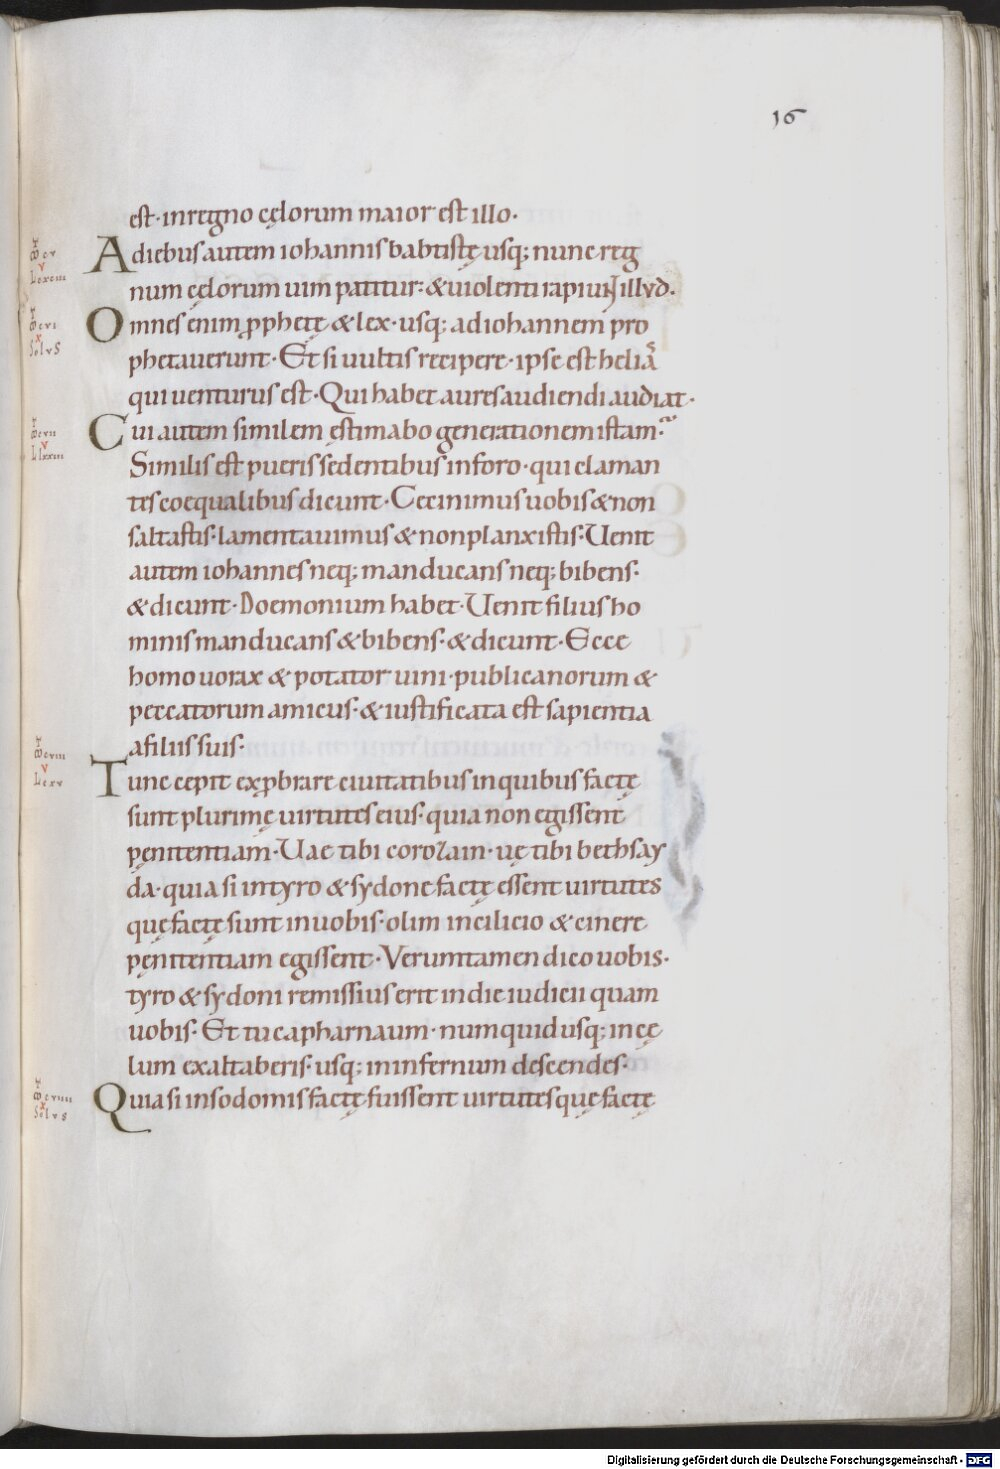 16
est· in regno cęlorum maior est illo·
A diebus autem iohannis babtistę usq; nunc reg
num cęlorum uim patitur· & uiolenti rapiunt illud·
Omnes enim ꝓphetę & lex· usq; ad iohannem pro
phetauerunt· Et si uultis recipere· ipse est heliā
qui uenturus est· Qui habet aures audiendi audiat·
Cui autem similem ęstimabo generationem istam·
Similis est pueris sedentibus in foro· qui claman
tes coequalibus dicunt· Cecinimus uobis & non
saltastis· lamentauimus & non planxistis· Uenit
autem iohannes neq; manducans neq; bibens·
& dicunt· Doemonium habet· Uenit filius ho
minis manducans & bibens· & dicunt· Ecce
homo uorax & potator uini· publicanorum &
peccatorum amicus· & iustificata est sapientia
a filiis suis·
Tunc cepit exꝓbrare ciuitatibus in quibus factę
sunt plurimę uirtutes eius· quia non egissent
pęnitentiam· Uae tibi corozain· uę tibi bethsay
da· quia si in tyro & sydone factę essent uirtutes
quę factę sunt in uobis· olim in cilicio & cinere
pęnitentiam egissent· Verumtamen dico uobis·
tyro & sydoni remissius erit in die iudicii quam
uobis· Et tu capharnaum· numquid usq; in cę
lum exaltaberis· usq; in infernum descendes·
Quia si in sodomis factę fuissent uirtutes quę factę
Digitalisierung gefördert durch die Deutsche Forschungsgemeinschaft - DFG